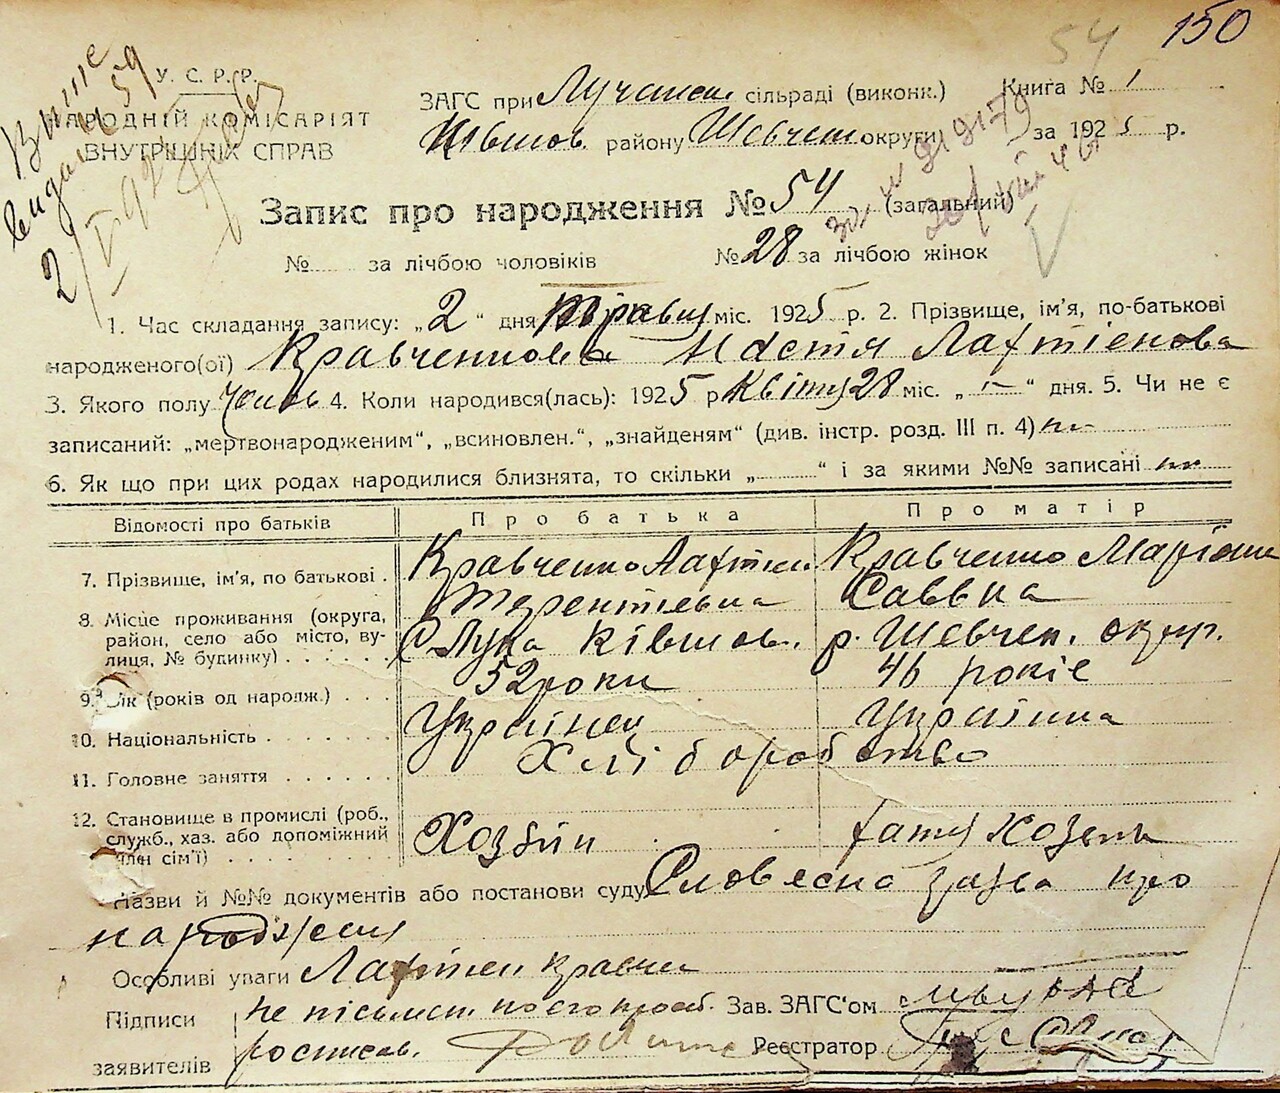 150
54
У. С. Р. Р.
НАРОДНІЙ КОМІСАРІЯТ
ВНУТРІШНІХ СПРАВ
ЗАГС при Лучанск. сільраді (виконк.) Книга № 1
Ківшов. району Шевчен. округи за 1925 р.
Запис про народження № 54 (загальний)
№ за лічбою чоловіків № 28 за лічбою жінок
1. Час складання запису: „2“ дня травня міс. 1925 р. 2. Прізвище, ім'я, по-батькові
народженого(ої) Кравченкова Настя Лахтіенова
3. Якого полу 4. Коли народився(лась): 1925 р. Квітня 28 міс. „ “ дня. 5. Чи не є
записаний: „мертвонародженим“, „всиновлен.“, „знайденям“ (див. інстр. розд. III п. 4)
6. Як що при цих родах народилися близнята, то скільки „ “ і за якими №№ записані
Відомості про батьків Про батька Про матір
7. Прізвище, ім'я, по батькові . Кравченко Лахтін Кравченко Марія
Терентієвич Саввна
8. Місце проживання (округа, район, село або місто, вулиця, № будинку) С. Лука Ківшов. р. Шевчен. округ.
9. Вік (років од народж.) . . 52 роки 46 років
10. Національність . . . . . . Українец Українка
11. Головне заняття . . . . . . Хліборобство
12. Становище в промислі (роб.,
служб., хаз. або допоміжний
член сім'ї) . . . . . . . . Хозяін
Назви й №№ документів або постанови суду Словесна заява про
народження
Особливі уваги Лахтін Кравчен
Підписи не пісьмен. по его прозб. Зав. ЗАГС'ом
заявителів росписав. Реєстратор